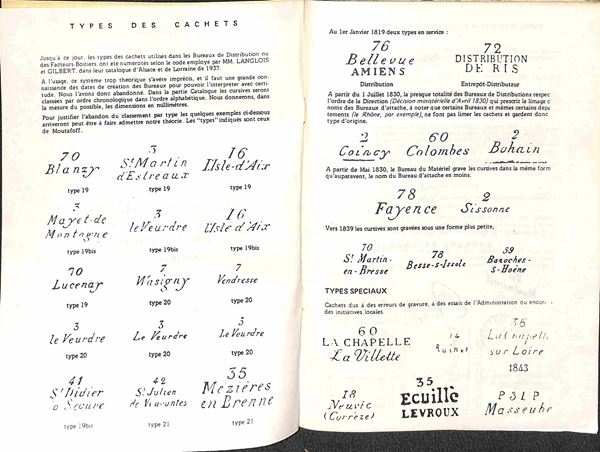 TYPES DES CACHETS
Jusqu'à ce jour, les types des cachets utilisés dans les Bureaux de Distribution ou
des Facteurs-Boitiers, ont été numérotés selon le code employé par MM. LANGLOIS
et GILBERT, dans leur catalogue d'Alsace et de Lorraine de 1937.
A l'usage, ce système trop théorique s'avère imprécis, et il faut une grande con-
naissance des dates de création des Bureaux pour pouvoir l'interpréter avec certi-
tude. Nous l'avons donc abandonné. Dans la partie Catalogue les cursives seront
classées par ordre chronologique dans l'ordre alphabétique. Nous donnerons, dans
la mesure du possible, les dimensions en millimètres.
Pour justifier l'abandon du classement par type les quelques exemples ci-dessous
arriveront peut être à faire admettre notre théorie. Les "types" indiqués sont ceux
de Moutafoff.
70 3 16
Blanzy St Martin d'Estreaux L'Isle-d'Aix
type 19 type 19
3 3 16
Mayet-de Montagne le Veurdre L'Isle d'Aix
type 19bis type 19bis type 19bis
70 7 7
Lucenay Wasigny Vendresse
type 19 type 20 type 20
3 3 3
le Veurdre Le Veurdre Le Veurdre
type 20 type 20 type 20
41 42 35
St Didier St Julien Mézières
en Brenne
type 19bis type 21 type 21
Au 1er Janvier 1819 deux types en service :
76 72
Bellevue DISTRIBUTION
AMIENS DE RIS
Distribution Entrepôt-Distributeur
A partir du 1 Juillet 1830, la presque totalité des Bureaux de Distributions respec
l'ordre de la Direction (Décision ministérielle d'Avril 1830) qui prescrit le limage c
noms des Bureaux d'attache, à noter que certains Bureaux et mêmes certains dépar
tements (le Rhône, par exemple), ne font pas limer les cachets et gardent donc
type d'origine.
2 60 2
Coincy Colombes Bohain
A partir de Mai 1830, le Bureau du Matériel grave les cursives dans la même form
qu'auparavent, le nom du Bureau d'attache en moins.
78 2
Fayence Sissonne
Vers 1839 les cursives sont gravées sous une forme plus petite.
70 78 39
St Martin-
en-Bresse
TYPES SPECIAUX
Cachets dus à des erreurs de gravure, a des essais de l'Administration ou encore
des initiatives locales.
60 36
LA CHAPELLE La Chapelle
La Villette Ruines sur Loire
1843
18 35 P31P
Neuvic Ecuillé
(Corrèze) LEVROUX Masseube